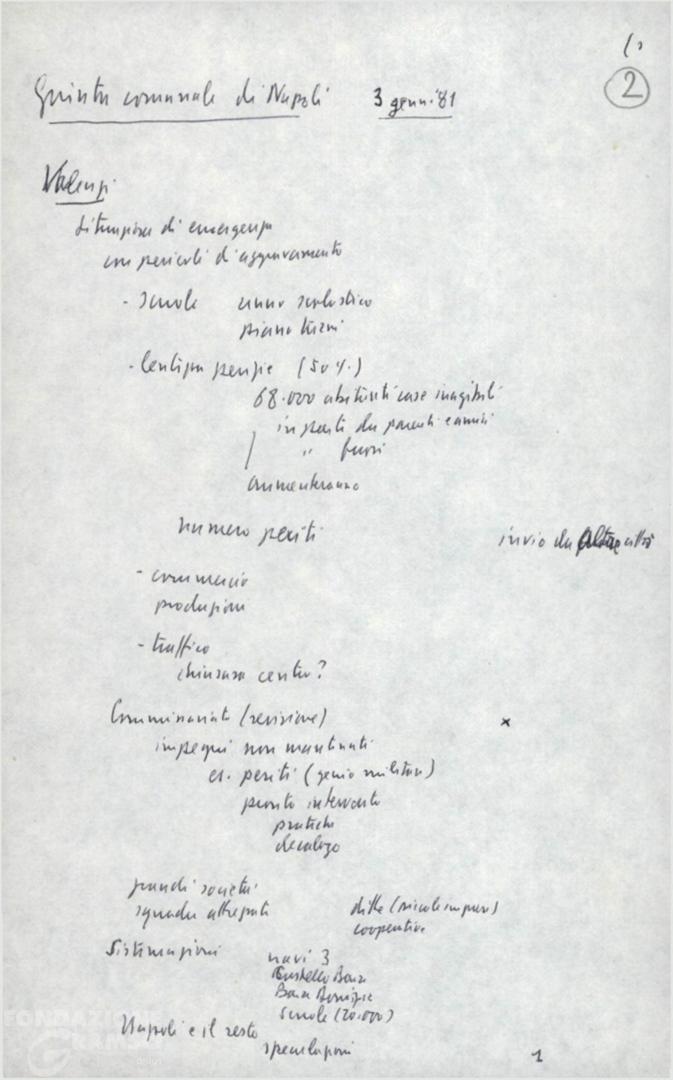 2
Giunta comunale di Napoli 3 genn. '81
Valenzi
situazione di emergenza
con pericoli d'aggravamento
- scuole anno scolastico
piano turni
- perizie (50%)
68.000 abitanti case inagibili
ospiti da parenti e amici
" fuori
aumenteranno
numero periti invio da altre città
- commercio
produzione
- traffico
chiusura centro?
Commissariato (revisione) x
impegni non mantenuti
es. periti (genio militare)
pronto intervento
pratiche
decalogo
grandi società
squadre attrezzate ditte (piccole imprese)
cooperative
Sistemazioni navi 3
scuole (20.000)
Napoli e il resto
speculazioni
1
FONDAZIONE
GRAMSCI